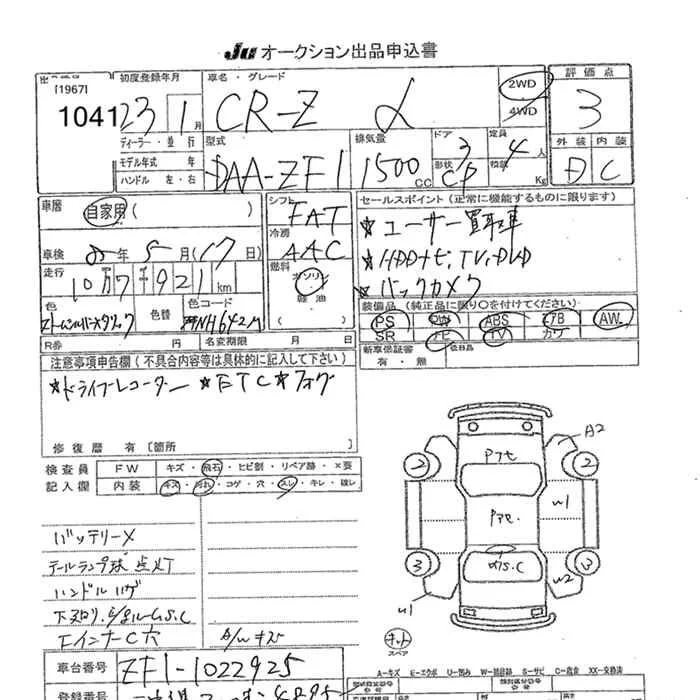 JU オークション出品申込書
[1967]
1041
初度登録年月
23 1月
ディーラー・並行
モデル年式 年
ハンドル 左・右
車名・グレード
CR-Z α
2WD
4WD
評価点
3
外装 内装
D C
型式
DAA-ZF1
排気量
1500 CC
ドア
3
形状
CP
定員
4人
積載
Kg
車歴
自家用( )
シフト
FAT
冷房
AAC
燃料
ガソリン
軽油
( )
車検 年 5月(17日)
走行
10万7千921km
色
色替
色コード
NH642M
R券 円 名変期限 月 日
セールスポイント (正常に機能するものに限ります)
★ユーザー買取車
★HDDナビ,TV,DVD
★バックカメラ
装備品 (純正品に限り○を付けてください)
PS PW ABS エアB AW
SR ナビ TV カワ
新車保証書
有・無
注意事項申告欄 (不具合内容等は具体的に記入して下さい)
★ドライブレコーダー ★ETC★フォグ
修復歴 有 [箇所
検査員
記入欄
FW キズ・飛石・ヒビ割・リペア跡・×要
内装 キズ・汚れ・コゲ・穴・スレ・キレ・破レ
バッテリー×
テールランプ球 点灯
ハンドル
Fインナー C 穴
A/W キズ
A2
2 2
W1
3 3
W2
W1
キット
スペア
A-キズ E-エクボ U-凹み W-補修跡 S-サビ C-腐食 XX-交換済
車台番号
ZF1-1022925
登録番号